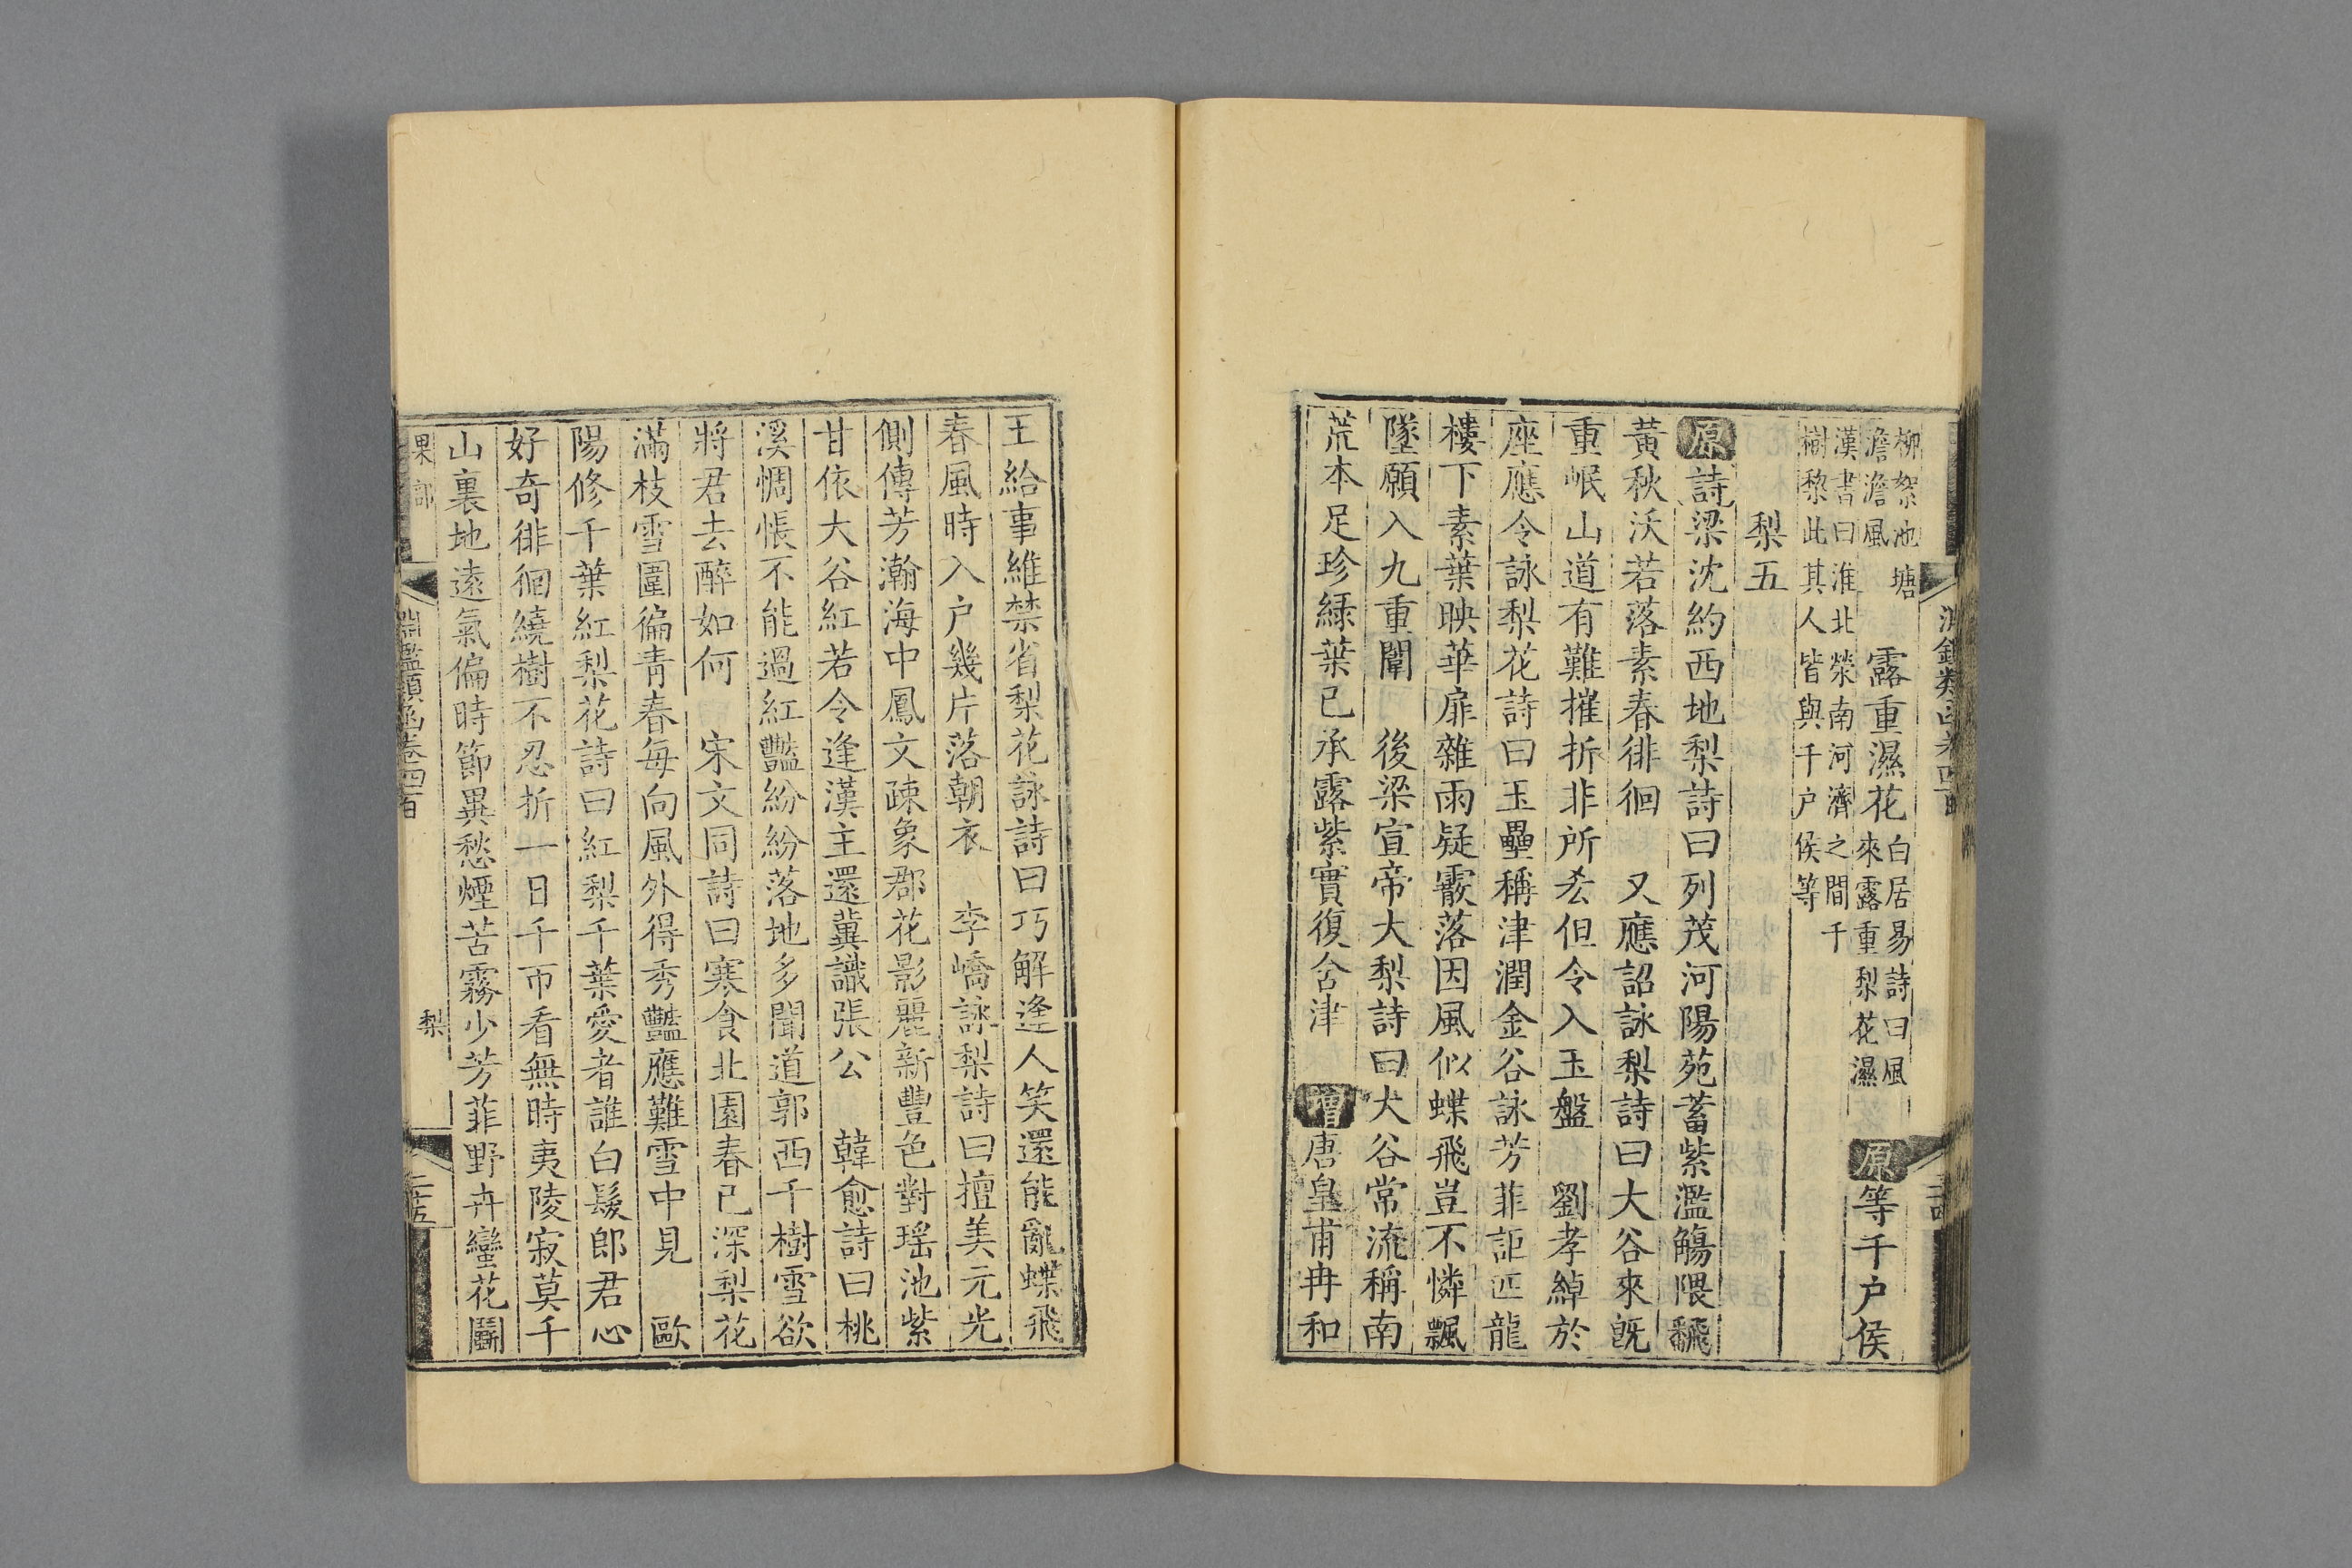 柳絮池塘
澹澹風
露重濕花
白居易詩曰風
來露重梨花濕
原等千户侯
漢書曰淮北滎南河濟之間千
樹棃此其人皆與千户侯等
梨五
原詩梁沈約西地梨詩曰列茂河陽苑蓄紫濫觴隈飜
黃秋沃若落素春徘徊　又應詔詠梨詩曰大谷來既
重岷山道有難摧折非所𠫤但令入玉盤　劉孝綽於
座應令詠梨花詩曰玉壘稱津潤金谷詠芳菲詎匹龍
樓下素葉映華扉雜雨疑霰落因風似蝶飛豈不憐飄
墜願入九重闈　後梁宣帝大梨詩曰大谷常流稱南
荒本足珍綠葉已承露紫實復含津　增唐皇甫冉和
王給事維禁省梨花詠詩曰巧解逢人笑還能亂蝶飛
春風時入户幾片落朝衣　李嶠詠梨詩曰擅美元光
側傳芳瀚海中鳳文疎象郡花影麗新豐色對瑶池紫
甘依大谷紅若令逢漢主還冀識張公　韓愈詩曰桃
溪惆悵不能過紅豔紛紛落地多聞道郭西千樹雪欲
將君去醉如何　宋文同詩曰寒食北園春已深梨花
滿枝雪圍徧青春每向風外得秀豔應難雪中見　歐
陽修千葉紅梨花詩曰紅梨千葉愛者誰白髮郎君心
好奇徘徊繞樹不忍折一日千帀看無時夷陵寂莫千
山裏地遠氣偏時節異愁煙苦霧少芳菲野卉蠻花鬭
果部
淵鑑類函卷四百
梨
二十五